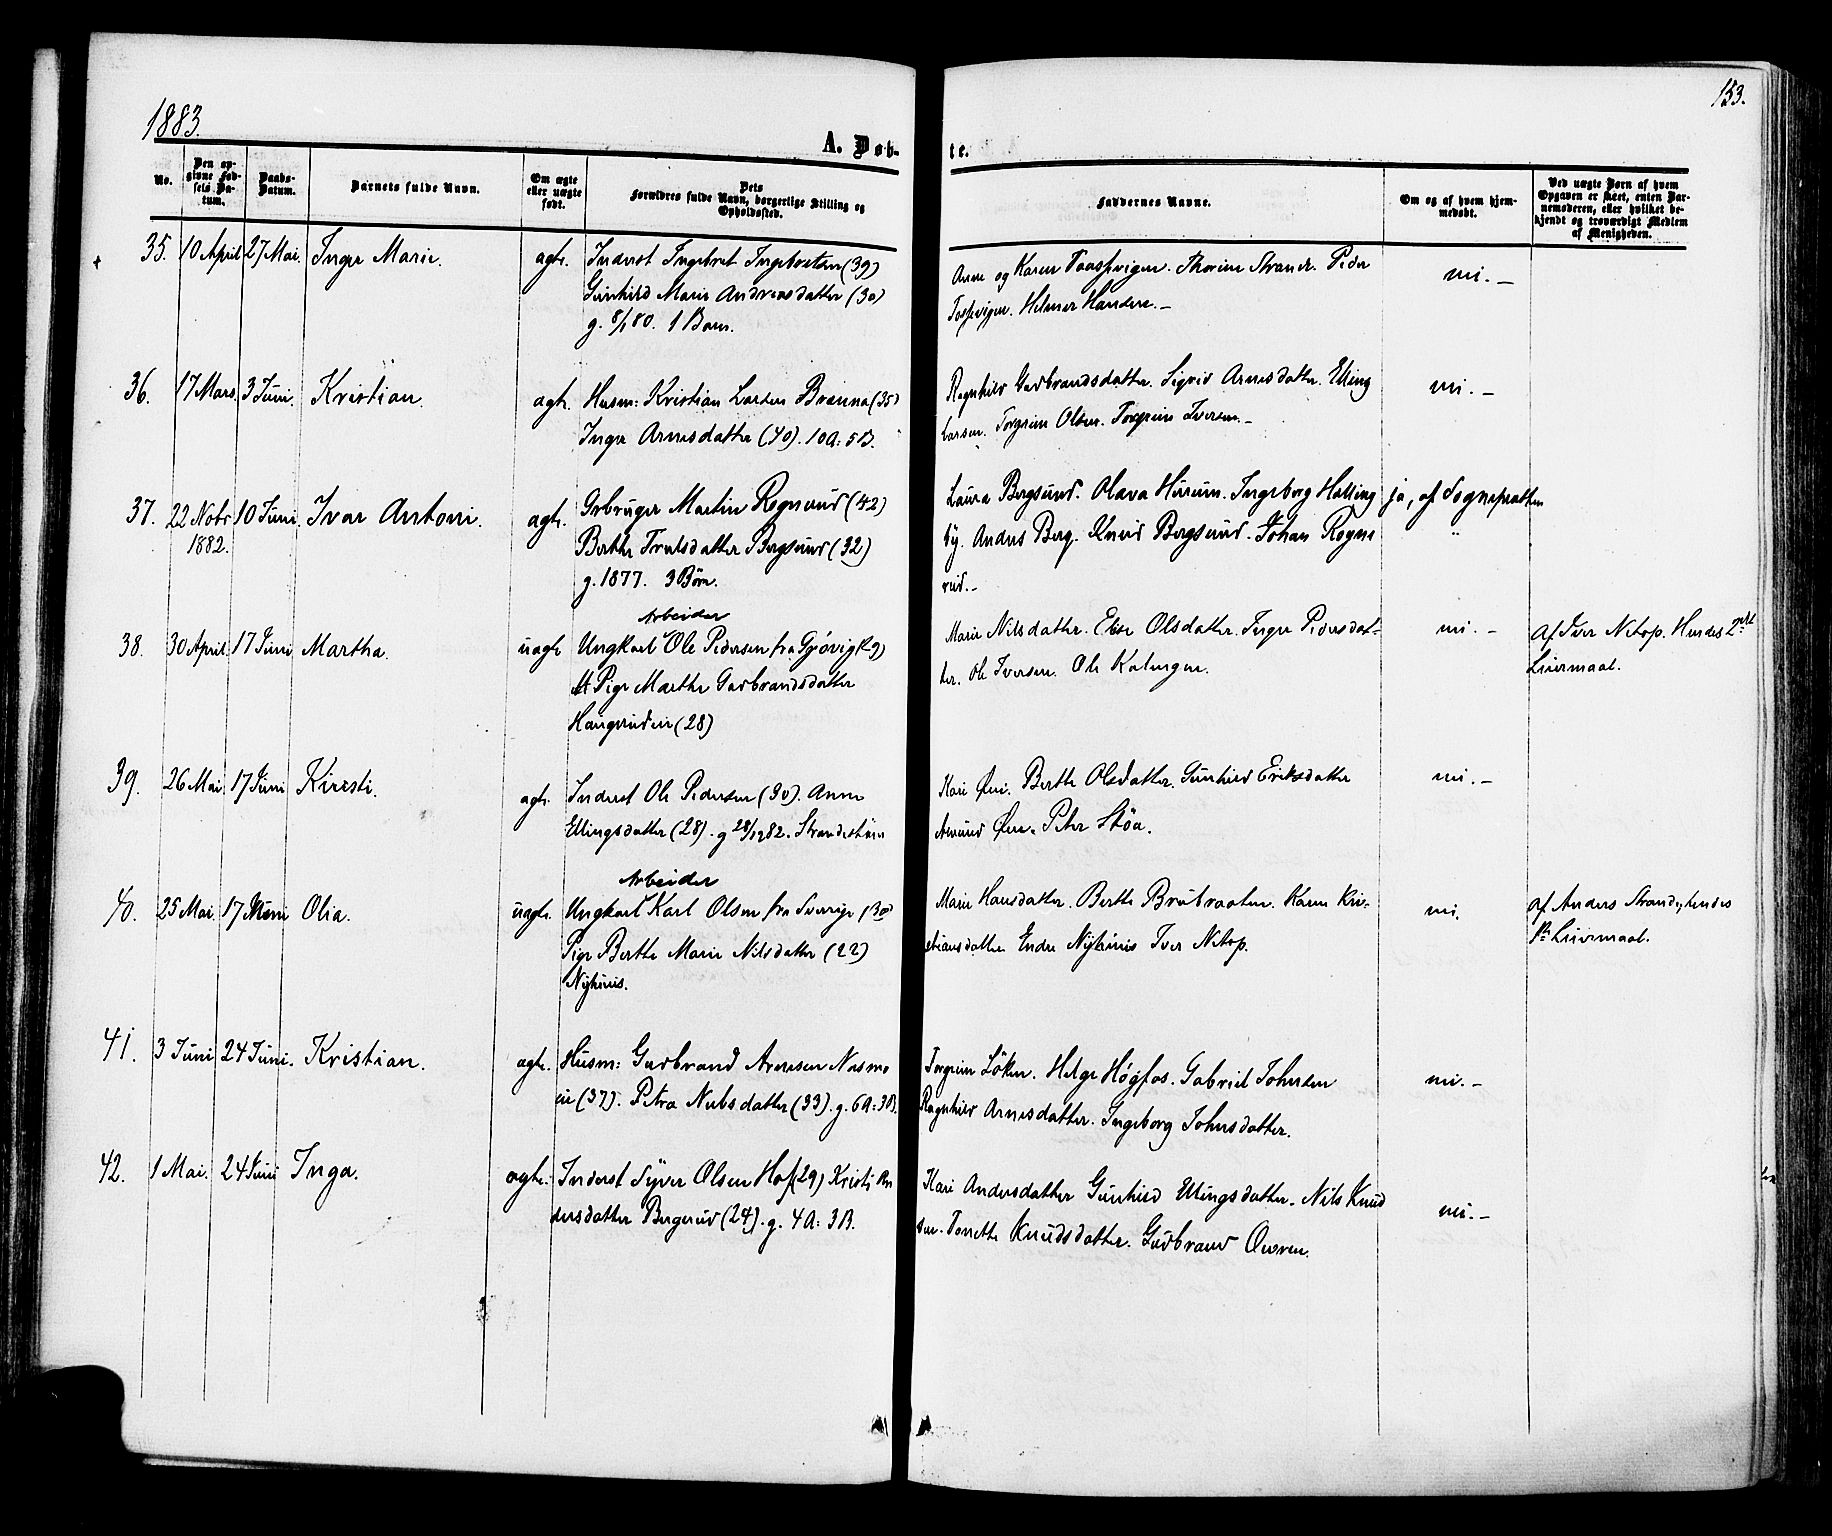 1883.
153.
A. Døb-
te.
No.
Den op-
givne Fød-
sels Da-
tum.
Daabs-
Datum.
Barnets fulde Navn.
Om ægte
eller uægte
født.
Dets
Forældres fulde Navn, borgerlige Stilling og
Opholdssted.
Faddernes Navne.
Om og af hvem hjem-
medøbt.
Ved uægte Børn af hvem
Opgaven er skeet, enten Bar-
nemoderen, eller hvilket be-
kjendt og troværdigt Medlem
af Menigheden.
35. 10 April 27 Mai. Inger Marie. ægte. Inderst Ingebret Ingebretsen (39)
Gunhild Marie Andreasdatter (30)
g. 8/1 80. 1 Barn.
Anne og Karen Thorine Strande. Peder
Helmer Hansen. —
nei. —
36. 17 Mars 3 Juni. Kristian. ægte. Husm: Kristian Larsen Brænna (35)
Inger Arnesdatter (40). 10 A: 5 B.
Ragnhild Gudbrandsdatter. Sigrid Arnesdatter. Elling
Larsen. Torgrim Olsen. Torgrim Iversen. —
nei. —
37. 22 Nobr 10 Juni. Ivar Antoni. ægte. Grbruger Martin Rognerud (42)
1882.
Berthe Trulsdatter Bergsund (32)
g. 1877. 3 Börn.
Laura Bergsund. Olava Ingeborg Halling
by. Anders Berg. Knud Bergsund. Johan Rogne
rud. —
ja, af Sognepræsten
38. 30 April 17 Juni Martha. uægte
Arbeider
Ungkarl Ole Pedersen fra Gjøvig (29)
Pige Marthe Gudbrandsdatter
Haugerudeie (28)
Marie Nilsdatter. Elise Olsdatter. Inger Pedersdat-
ter. Ole Iversen. Ole
nei. —
af Iver Netop. Hendes 2det
Leiermaal.
39. 26 Mai. 17 Juni Kirsti. ægte. Inderst Ole Pedersen (30). Anne
Ellingsdatter (28). g 28/12 82.
Kari Berthe Olsdatter. Gunhild Eriksdatter
Amund Peter Stöa.
nei. —
40. 25 Mai. 17 Juni Olia. uægte.
Arbeider
Ungkarl Karl Olsen fra Sverige (30)
Pige Berthe Marie Nilsdatter (22)
Nyhuus.
Marie Hansdatter. Berthe Brubraaten. Karen Kri-
stiansdatter Endre Nyhuus Iver Netop.
nei.
af Anders Strand, hendes
1ste Leiermaal.
41. 3 Juni 24 Juni. Kristian. ægte. Husm: Gudbrand Arnesen Næsmo
eie (37). Petra Nubsdatter (33). g. 6 A: 3 B.
Torgrim Löken. Helge Høgfos. Gabriel Johnsen
Ragnhild Arnesdatter. Ingeborg Johnsdatter.
nei. —
42. 1 Mai. 24 Juni Inga. ægte. Inderst Syver Olsen Hof (29) Kristi An
dersdatter Bergerud (24). g. 4 A: 3 B.
Kari Andersdatter Gunhild Ellingsdatter. Nils Knud
sen. Tonette Knudsdatter. Gudbrand
nei. —